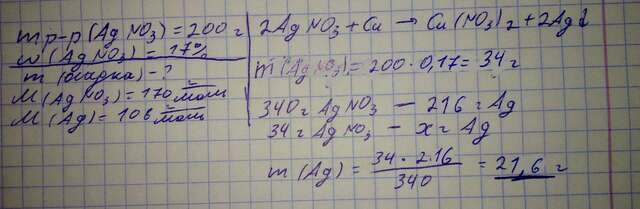 m р-р (AgNO₃) = 200 г
w (AgNO₃) = 17%
m (осадка) - ?
M (AgNO₃) = 170 г/моль
M (Ag) = 108 г/моль
2AgNO₃ + Cu → Cu(NO₃)₂ + 2Ag↓
m (AgNO₃) = 200 · 0,17 = 34 г
340 г AgNO₃ — 216 г Ag
34 г AgNO₃ — x г Ag
m (Ag) = 34 · 2.16 / 340 = 21,6 г